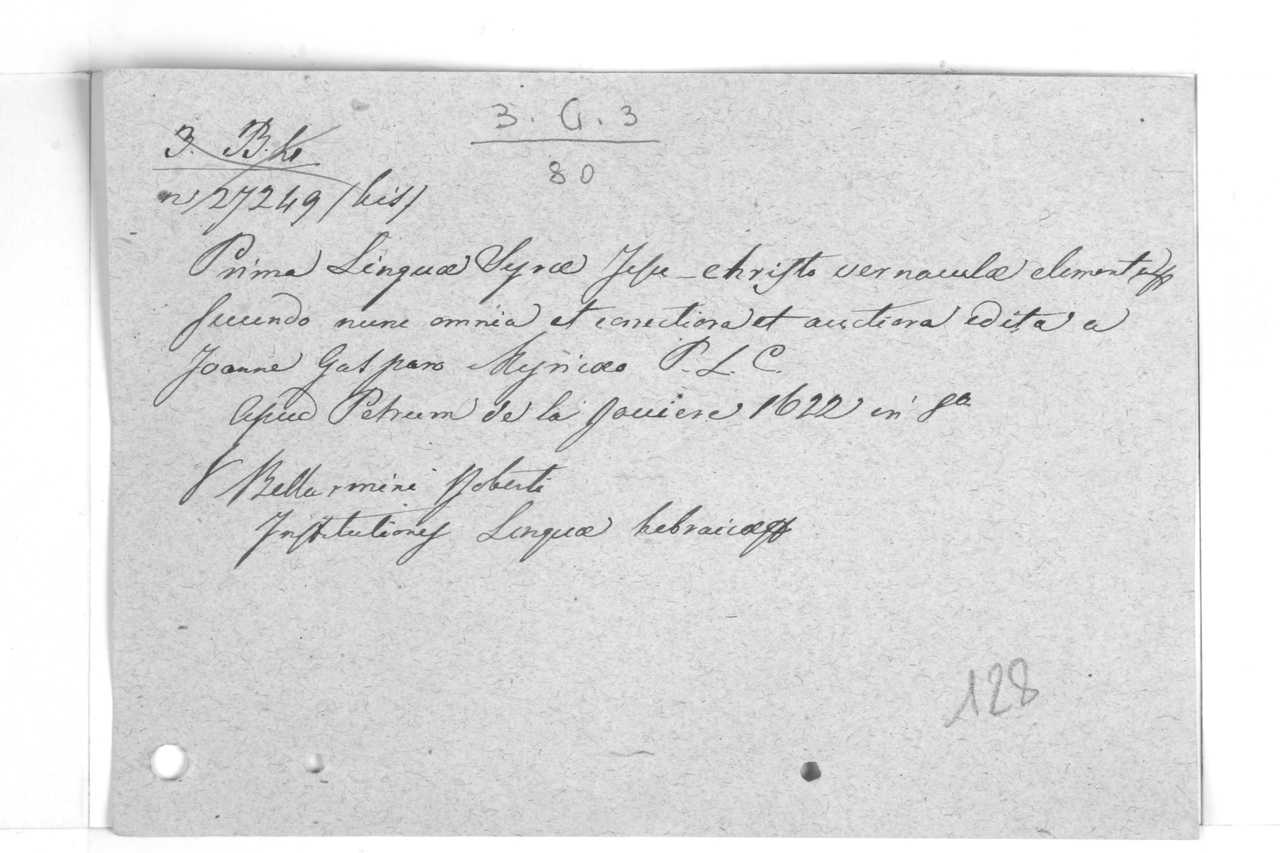 3. G. 3
80
3. B.
n° 27249 (bis)
Prima Linguæ Syræ Jesu-christo vernaculæ elementa
secundo nunc omnia et correctiora et auctiora edita a
Joanne Gasparo Myricæo P. L. C.
apud Petrum de la Rouiere 1622 in 8°
Bellarmini Roberti
Institutiones Linguæ hebraicæ
128